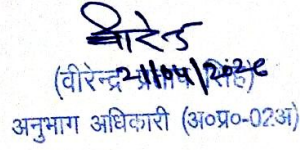 वीरेन्द्र
(वीरेन्द्र सिंह)
अनुभाग अधिकारी (अ०प्र०-02अ)